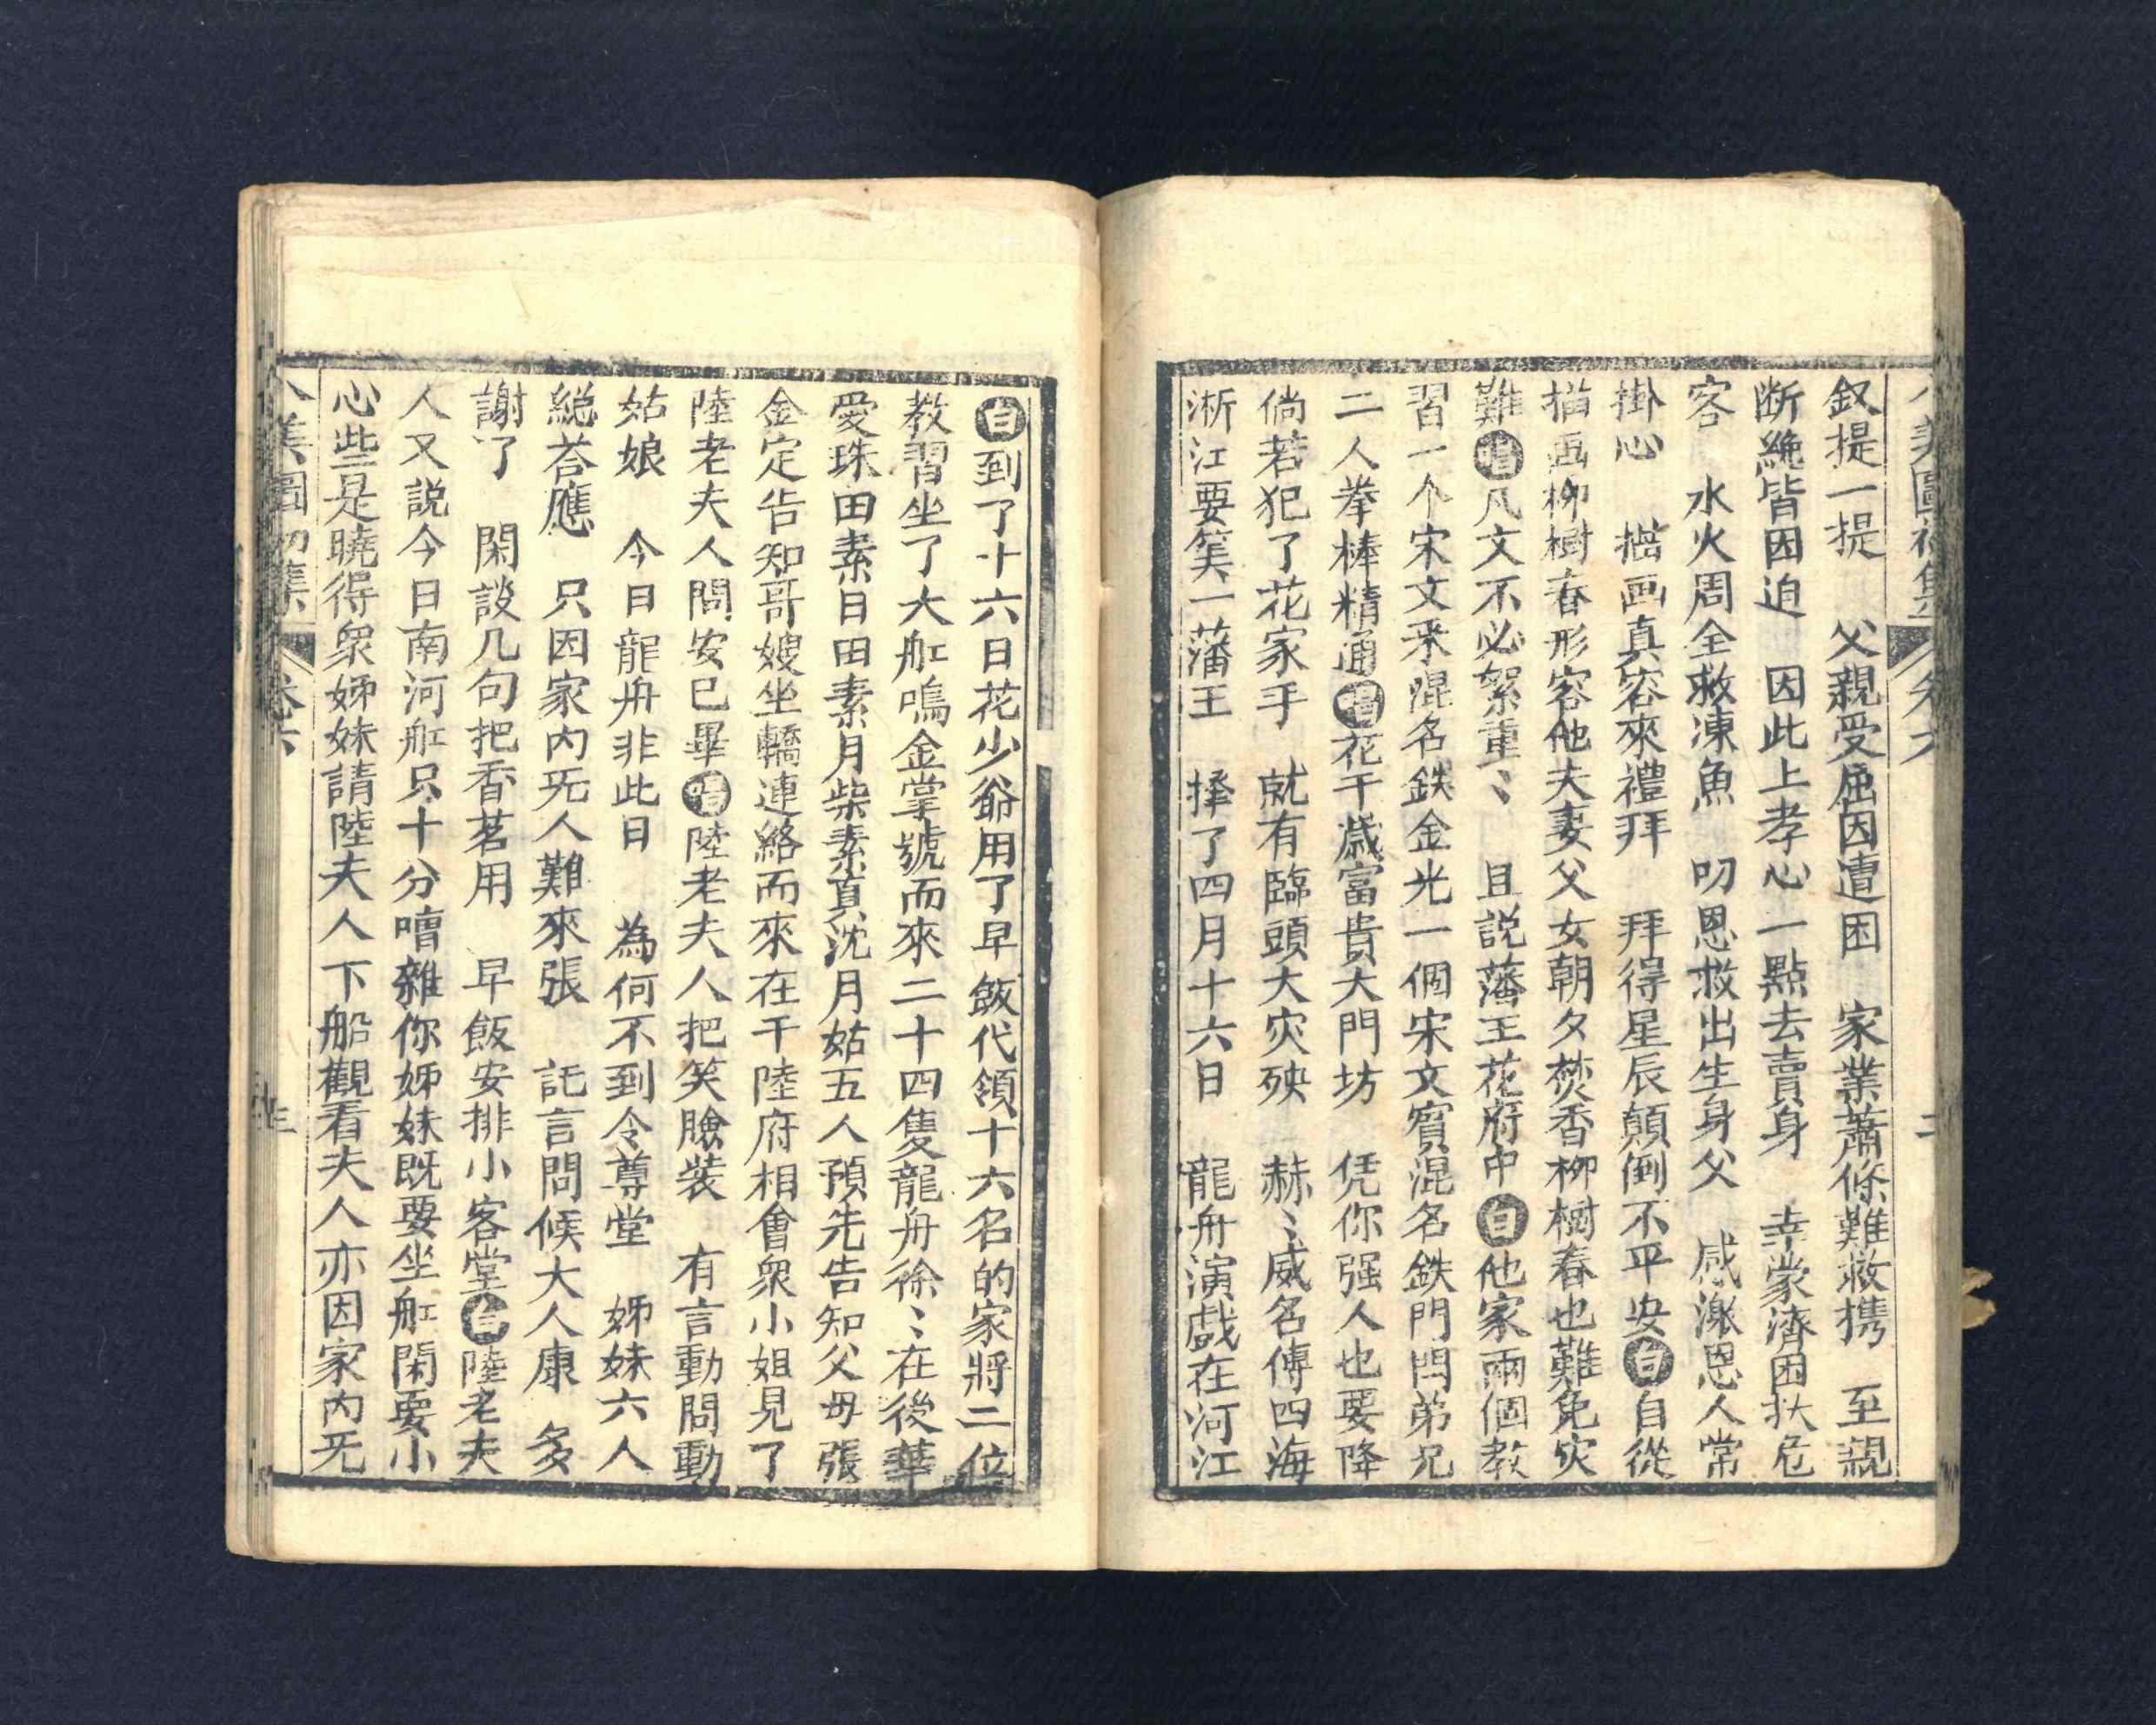 八美圖初集 卷六 二
叙提一提 父親受屈因遭困 家業蕭條難救携 至親
断絶皆因迫 因此上孝心一點去賣身 幸蒙濟困扶危
客 水火周全救凍魚 叨恩救出生身父 感激恩人常
掛心 描画真容來禮拜 拜得星辰顛倒不平安白自從
描画柳樹春形容他夫妻父女朝夕焚香柳樹春也難免灾
難唱凡文不必絮重〻 且説藩王花府中白他家兩個教
習一个宋文采混名鉄金光一個宋文賓混名鉄門閂弟兄
二人拳棒精通唱花千歲富貴大門坊 凭你强人也要降
倘若犯了花家手 就有臨頭大灾殃 赫〻威名傳四海
淅江要算一藩王 擇了四月十六日 龍舟演戱在河江
白到了十六日花少爺用了早飯代領十六名的家將二位
教習坐了大舡鳴金掌號而來二十四隻龍舟徐〻在後華
愛珠田素日田素月柴素真沈月姑五人預先告知父毋張
金定告知哥嫂坐轎連絡而來在干陸府相會衆小姐見了
陸老夫人問安已畢唱陸老夫人把笑臉裝 有言動問動
姑娘 今日龍舟非此日 為何不到令尊堂 姊妹六人
総荅應 只因家内旡人難來張 託言問候大人康 多
謝了 閑談几句把香茗用 早飯安排小客堂白陸老夫
人又説今日南河舡只十分嘈雜你姊妹既要坐舡閑耍小
心些是曉得衆姊妹請陸夫人下船觀看夫人亦因家内旡
八美圖初集 卷六